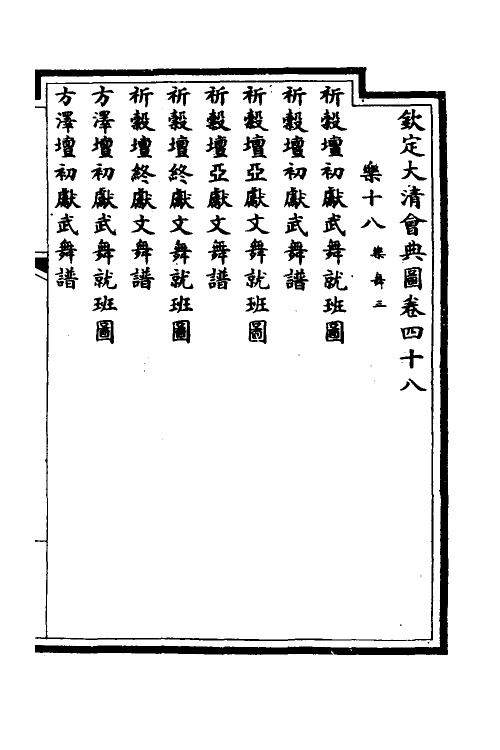 欽定大清會典圖卷四十八
樂十八 樂舞三
祈穀壇初獻武舞就班圖
祈穀壇初獻武舞譜
祈穀壇亞獻文舞就班圖
祈穀壇亞獻文舞譜
祈穀壇終獻文舞就班圖
祈穀壇終獻文舞譜
方澤壇初獻武舞就班圖
方澤壇初獻武舞譜